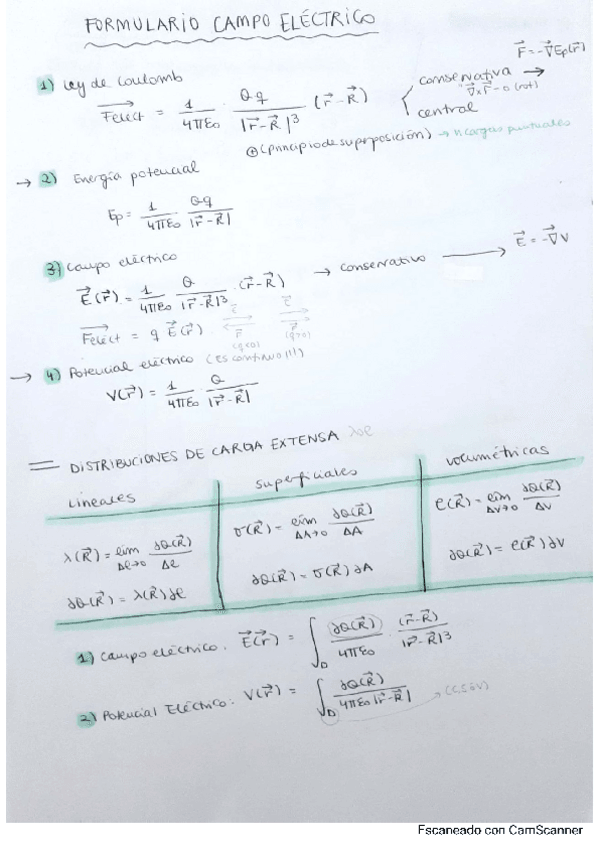 FORMULARIO CAMPO ELÉCTRICO
1) Ley de Coulomb
F⃗elect = 1/4πε₀ · Qq/|r⃗-R⃗|³ (r⃗-R⃗)
conservativa → F⃗=-∇⃗Ep(r⃗)
"∇⃗xF⃗=0 (rot)
central
⊕(principio de superposición) → n cargas puntuales
→ 2) Energía potencial
Ep= 1/4πε₀ Qq/|r⃗-R⃗|
3) Campo eléctrico → conservativo → E⃗=-∇⃗V
E⃗(r⃗)= 1/4πε₀ Q/|r⃗-R⃗|³ ·(r⃗-R⃗)
F⃗elect = q E⃗(r⃗)
E⃗ F⃗ (q<0)
E⃗ F⃗ (q>0)
→ 4) Potencial eléctrico (es continuo!!!)
V(r⃗)= 1/4πε₀ Q/|r⃗-R⃗|
= DISTRIBUCIONES DE CARGA EXTENSA λσρ
Lineales
superficiales
volumétricas
λ(R⃗)= lím Δl→0 ∂Q(R⃗)/Δl
∂Q(R⃗)= λ(R⃗)∂l
σ(R⃗)= lím ΔA→0 ∂Q(R⃗)/ΔA
∂Q(R⃗)= σ(R⃗)∂A
ρ(R⃗)= lím ΔV→0 ∂Q(R⃗)/ΔV
∂Q(R⃗)= ρ(R⃗)∂V
1) Campo eléctrico. E⃗(r⃗) = ∫D ∂Q(R⃗)/4πε₀ · (r⃗-R⃗)/|r⃗-R⃗|³
2) Potencial Eléctrico: V(r⃗) = ∫D ∂Q(R⃗)/4πε₀|r⃗-R⃗| → (C,S ó V)
Escaneado con CamScanner